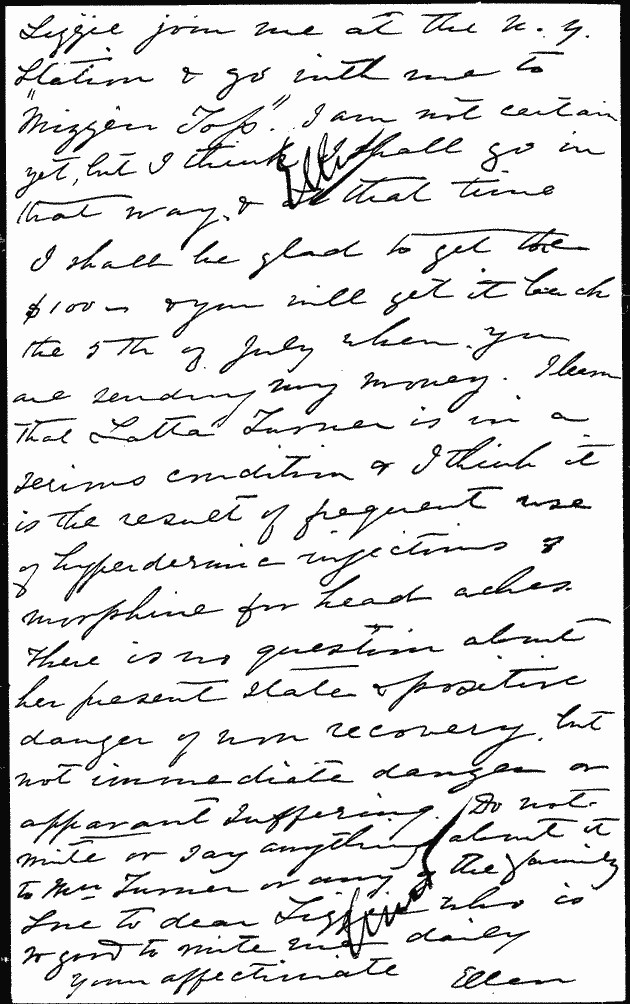 Lizzie join me at the N. Y.
Station & go with me to
"Mizzen Top". I am not certain
yet, but I think I shall go in
that way. & that time
I shall be glad to get the
$100 & you will get it back
the 5th of July when you
are sending my money. I learn
that Latta Turner is in a
serious condition & I think it
is the result of frequent use
of hyperdermic injections of
morphine for head aches.
There is no question about
her present state & positive
danger of non recovery, but
not immediate danger or
apparant suffering. Do not
write or say anything about it
to Mrs Turner or any of the family
Love to dear Lizzie who is
so good to write me daily
Your affectionate Ellen